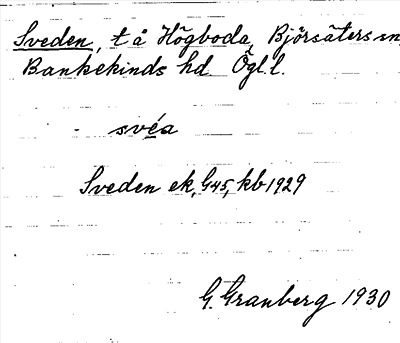 Sveden, t å Högboda, Björsäters sn,
Bankekinds hd Ögl. l.
svéa
Sveden ek, G45, kb 1929
G. Granberg 1930